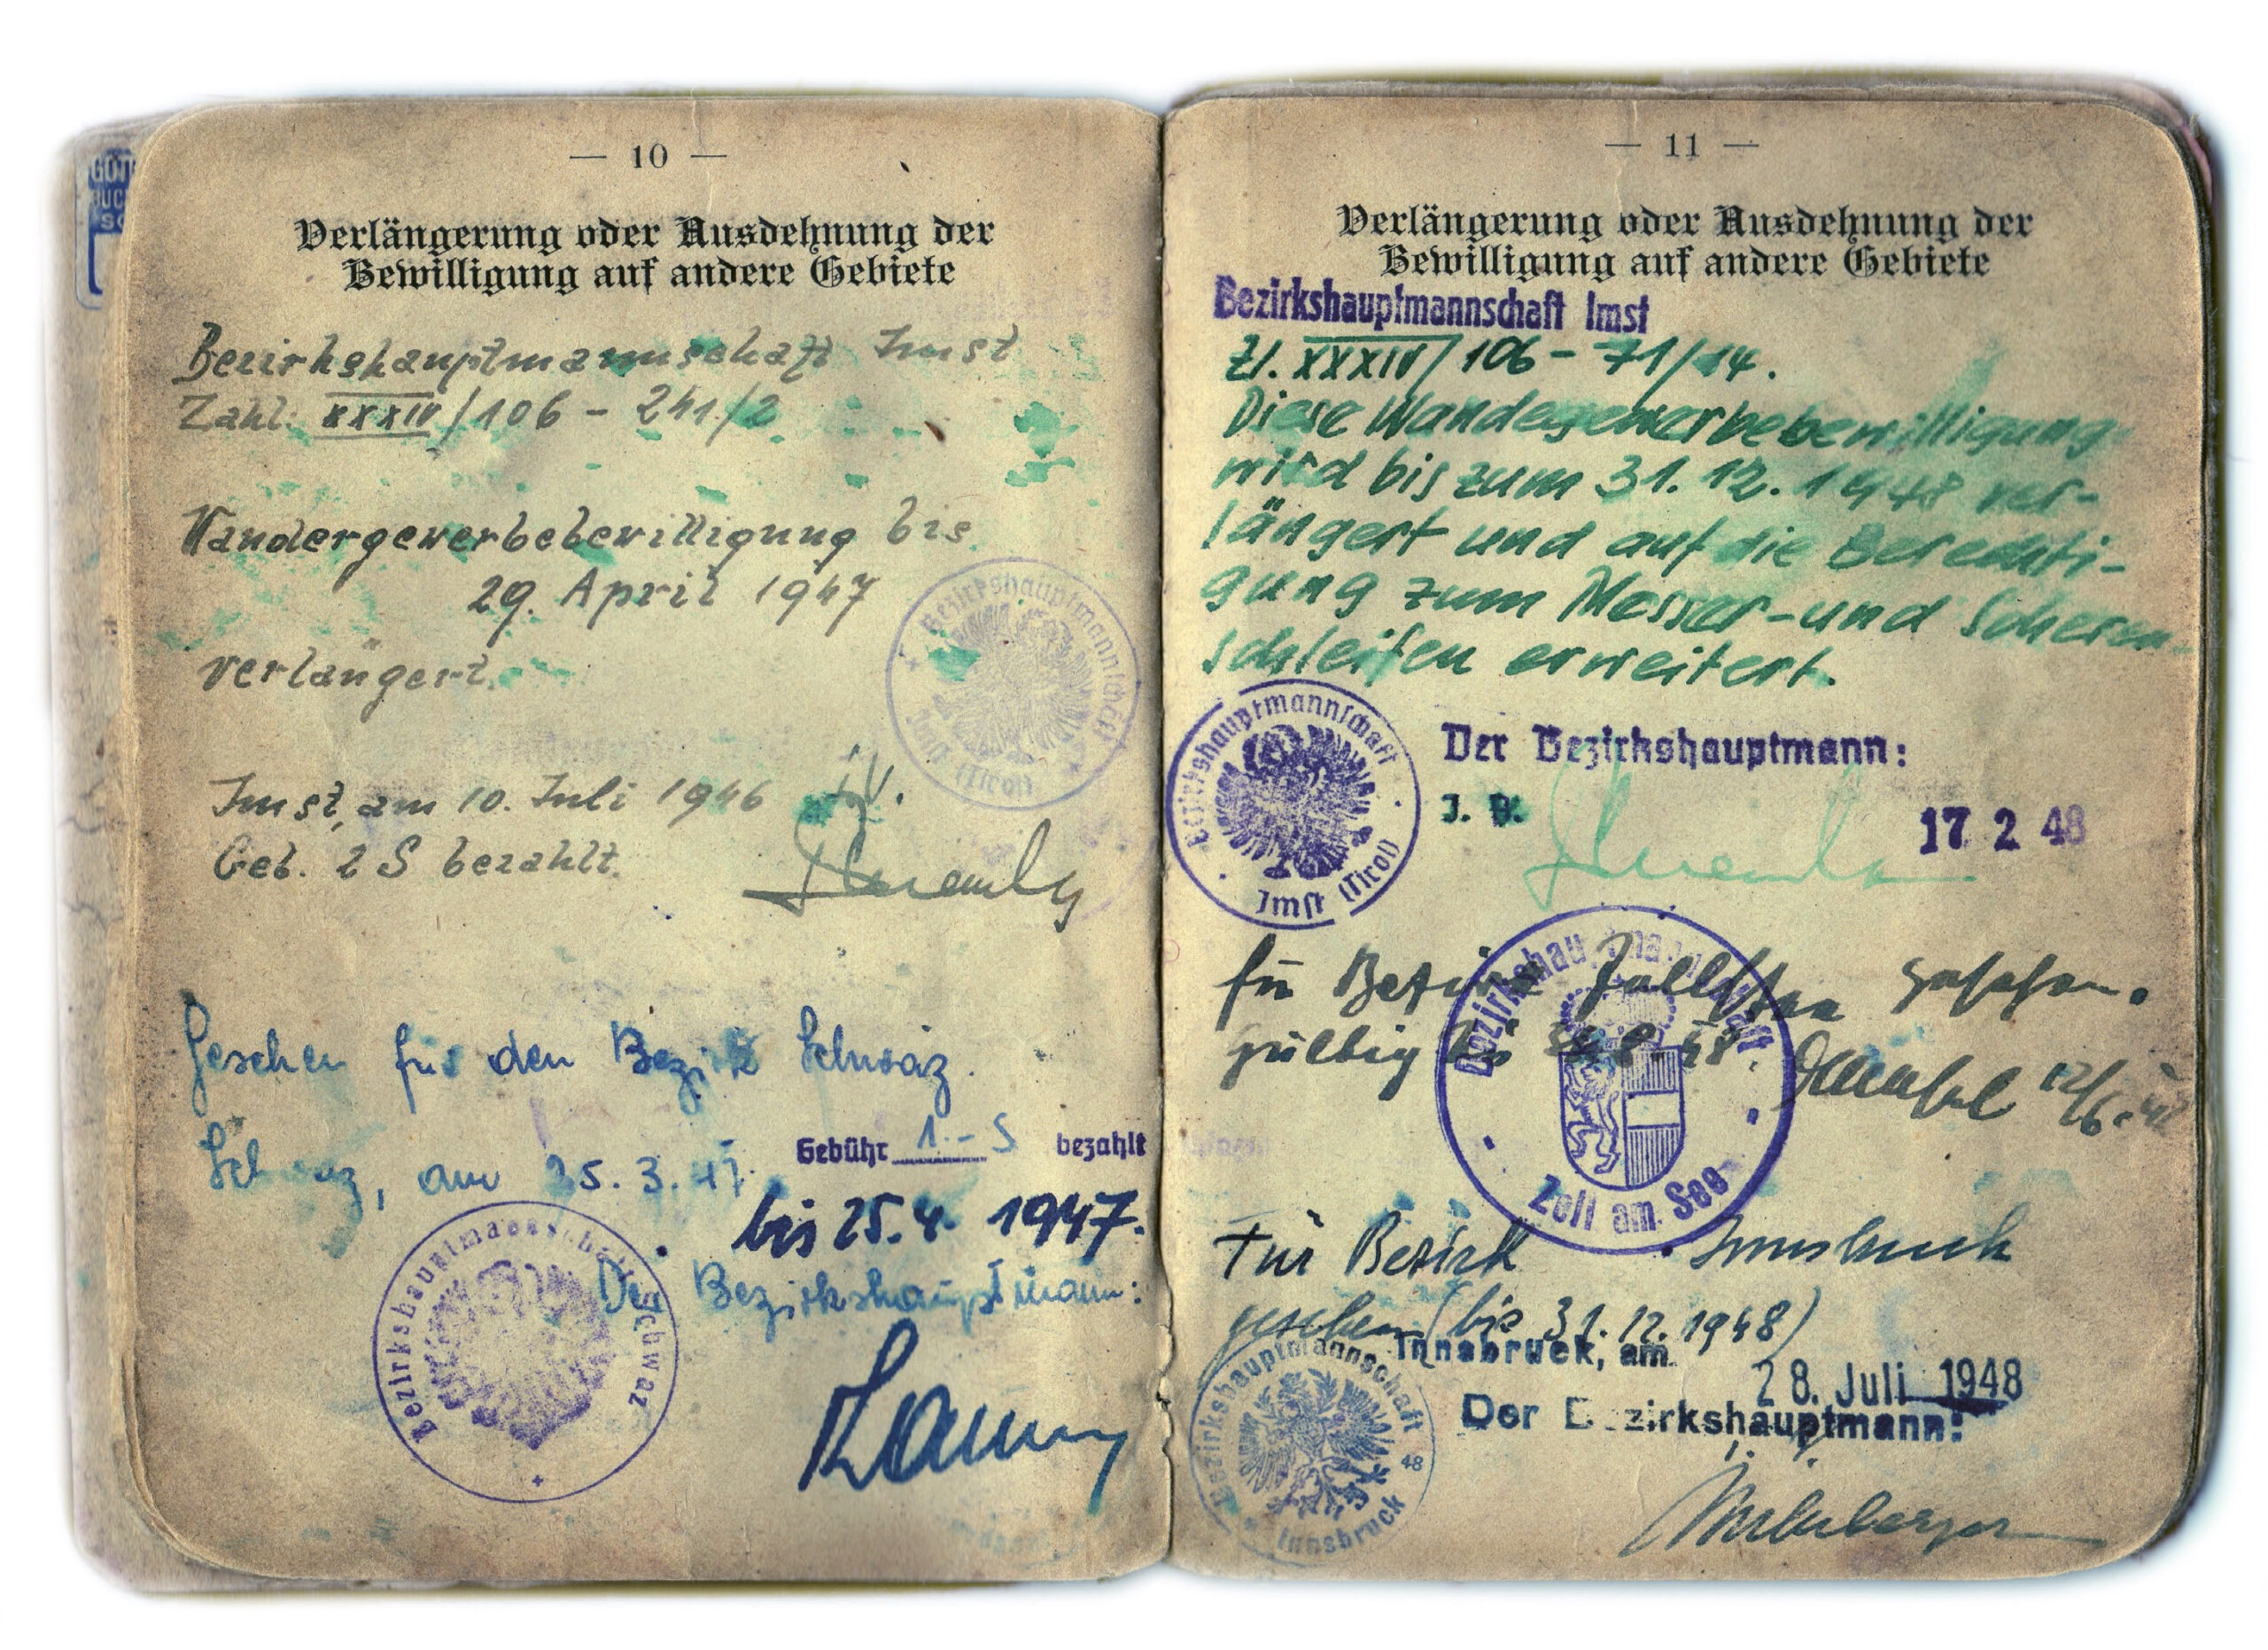 — 10 —
Verlängerung oder Ausdehnung der
Bewilligung auf andere Gebiete
Bezirkshauptmannschaft Imst
Zahl: XXXIV/106 - 241/2
Wandergewerbebewilligung bis
29. April 1947
verlängert.
Bezirkshauptmannschaft
Imst (Tirol)
Imst, am 10. Juli 1946
i.V.
Geb. 2 S bezahlt.
Gesehen für den Bezirk Schwaz.
Schwaz, am 25.3.47.
Gebühr 1.- S bezahlt
bis 25.4. 1947.
Der Bezirkshauptmann:
Bezirkshauptmannschaft Schwaz
— 11 —
Verlängerung oder Ausdehnung der
Bewilligung auf andere Gebiete
Bezirkshauptmannschaft Imst
Zl. XXXIV/106 - 71/14.
Diese Wandegewerbebewilligung
wird bis zum 31.12.1948 ver-
längert und auf die Berechti-
gung zum Messer- und Scheren-
schleifen erweitert.
Bezirkshauptmannschaft
Imst (Tirol)
Der Bezirkshauptmann:
I. V.
17 2 48
für Bezirk Zell/See gesehen.
gültig bis
12/6. 48
Bezirkshauptmannschaft
Zell am See
Für Bezirk Innsbruck
gesehen (bis 31.12.1948)
Innsbruck, am
28. Juli 1948
Der Bezirkshauptmann:
Bezirkshauptmannschaft
48
Innsbruck